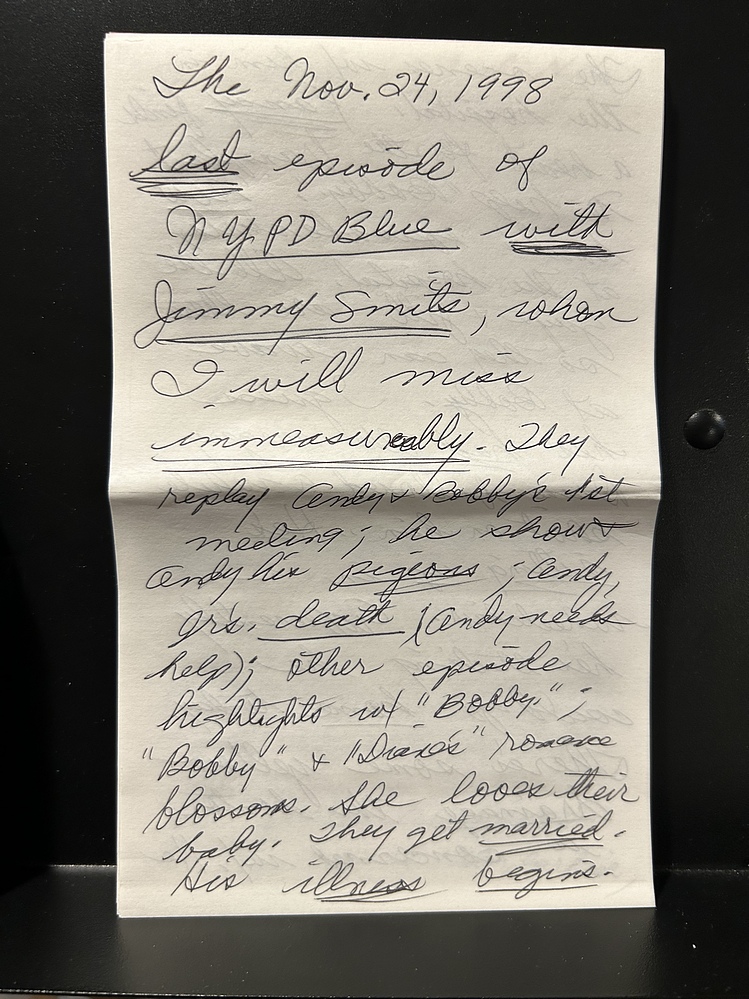 The Nov. 24, 1998
last episode of
NYPD Blue with
Jimmy Smits, whom
I will miss
immeasurably. They
replay Andy & Bobby's 1st
meeting; he shows
Andy his pigeons; Andy,
Jr's. death (Andy needs
help); other episode
highlights w/ "Bobby";
"Bobby" & "Diane's" romance
blossoms. She loses their
baby. They get married.
His illness begins.